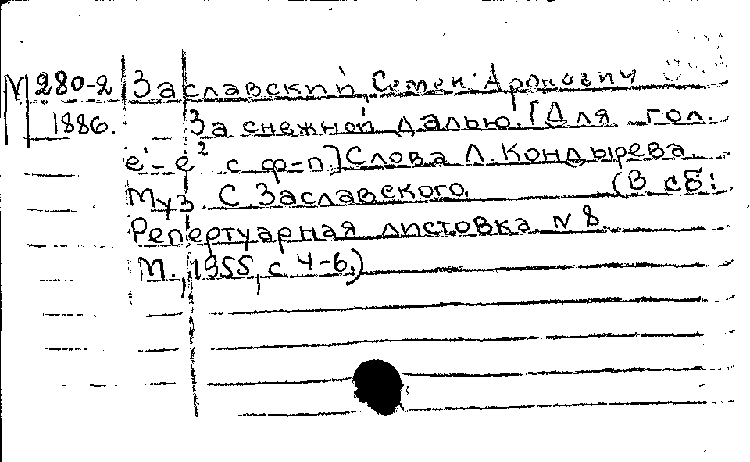 М 280-2 Заславский, Семен Аронович
1886. За снежной далью. [Для гол.
e'-e² с ф-п.] Слова Л. Кондырева
Муз. С. Заславского. (В сб:
Репертуарная листовка N 8
М., 1955, с 4-6.)